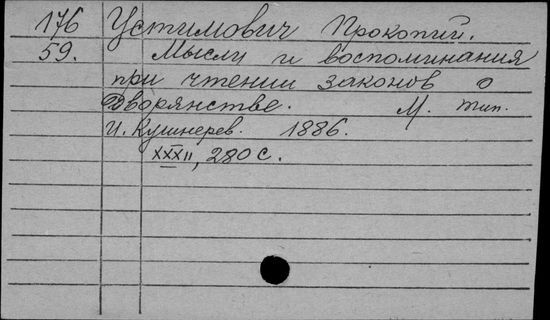 176 Устимович Прокопий.
59. Мысли и воспоминания
при чтении законов о
Дворянстве. М. тип.
И. Кушнерев. 1886.
XXXII, 280 с.